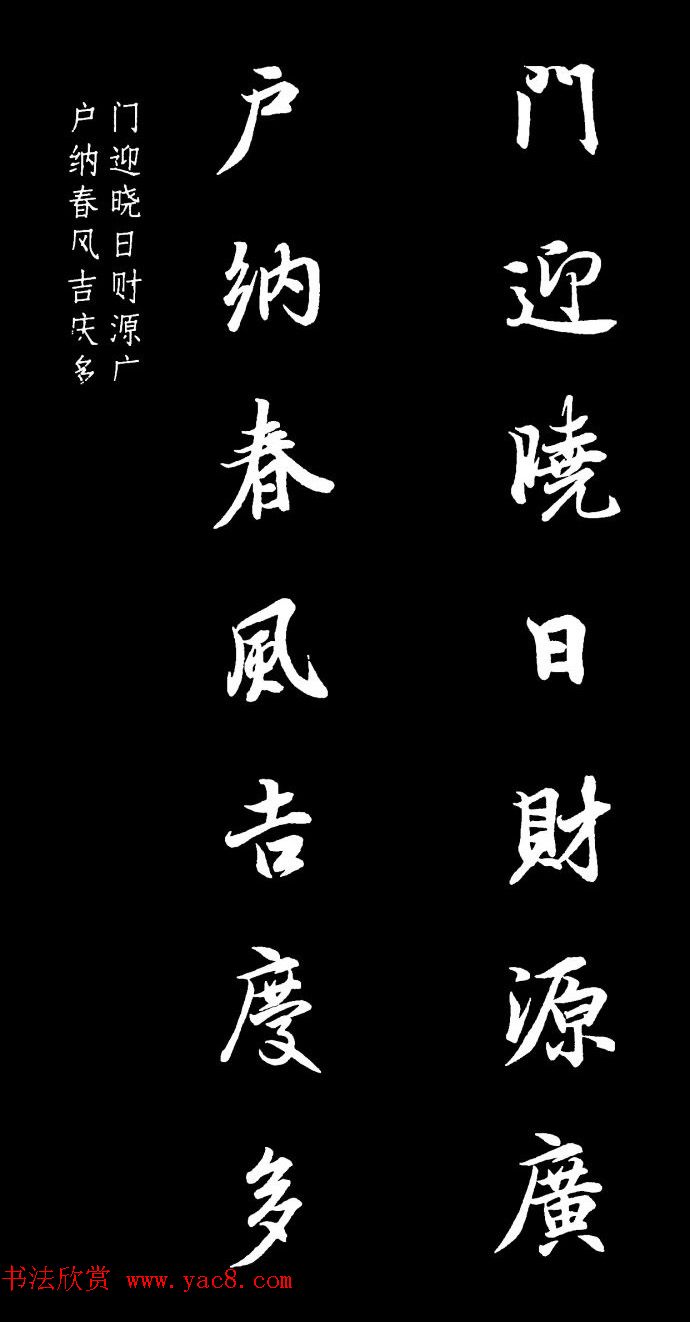 門迎曉日財源廣
户纳春風吉慶多
门迎晓日财源广
户纳春风吉庆多
书法欣赏 www.yac8.com